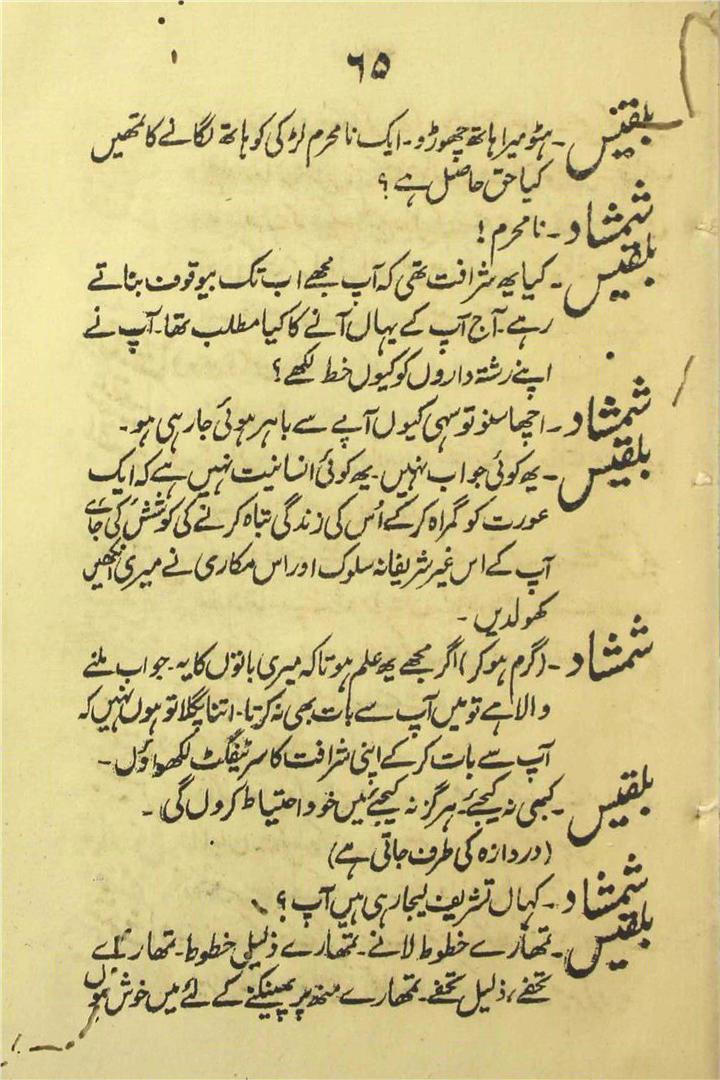 ۶۵
بلقیس ۔ ہٹو میرا ہاتھ چھوڑو۔ ایک نامحرم لڑکی کو ہاتھ لگانے کا تمھیں
کیا حق حاصل ہے ؟
شمشاد ۔ نامحرم !
بلقیس ۔ کیا یہ شرافت تھی کہ آپ مجھے اب تک بیوقوف بناتے
رہے ۔ آج آپ کے یہاں آنے کا کیا مطلب تھا۔ آپ نے
اپنے رشتہ داروں کو کیوں خط لکھے ؟
شمشاد ۔ اچھا سنو تو سہی کیوں آپے سے باہر ہوئی جا رہی ہو ۔
بلقیس ۔ یہ کوئی جواب نہیں ۔ یہ کوئی انسانیت نہیں ہے کہ ایک
عورت کو گمراہ کر کے اُس کی زندگی تباہ کرنے کی کوشش کی جائے
آپ کے اس غیر شریفانہ سلوک اور اس مکاری نے میری آنکھیں
کھولدیں ۔
شمشاد ۔ (گرم ہو کر) اگر مجھے یہ علم ہوتا کہ میری باتوں کا یہ ۔ جواب ملنے
والا ہے تو میں آپ سے بات بھی نہ کرتا ۔ اتنا پگلا تو ہوں نہیں کہ
آپ سے بات کر کے اپنی شرافت کا سرٹیفکٹ لکھواؤں ۔
بلقیس ۔ کبھی نہ کیجئے ۔ ہرگز نہ کیجئے میں خود احتیاط کروں گی ۔
(دروازہ کی طرف جاتی ہے)
شمشاد ۔ کہاں تشریف لیجا رہی ہیں آپ ؟
بلقیس ۔ تمھارے خطوط لانے ۔ تمھارے ذلیل خطوط ۔ تمھارے
تحفے ، ذلیل تحفے ۔ تمھارے منھ پر پھینکنے کے لئے میں خوش ہوں